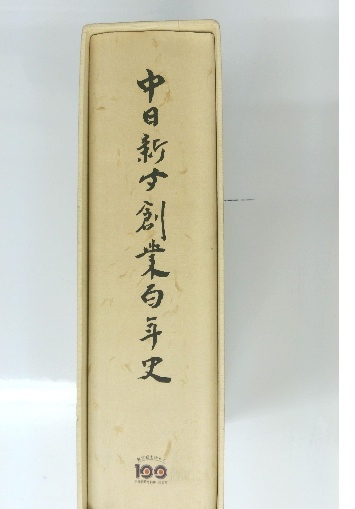 中日新聞創業百年史
100